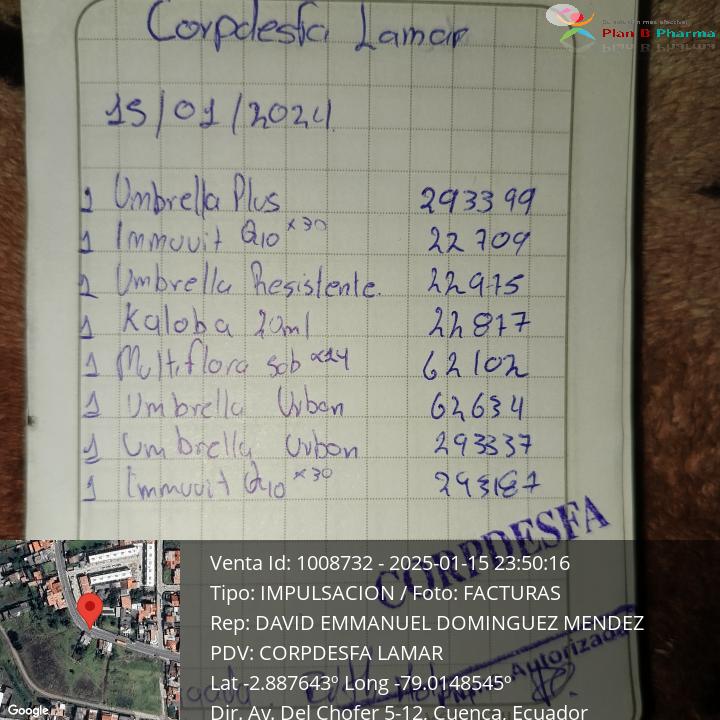 Corpdesfa Lamar
Tu solución más efectiva!
Plan B Pharma
15/01/2024
1 Umbrella Plus 293399
1 Immuvit Q10 x30 22709
1 Umbrella Resistente. 22975
1 Kaloba 20ml 22877
1 Multiflora sob x14 62102
1 Umbrella Urban 62634
1 Umbrella Urban 293337
1 Immuvit Q10 x30 293187
CORPDESFA
Venta Id: 1008732 - 2025-01-15 23:50:16
Tipo: IMPULSACION / Foto: FACTURAS
Rep: DAVID EMMANUEL DOMINGUEZ MENDEZ
PDV: CORPDESFA LAMAR
Autorizada
Lat -2.887643º Long -79.0148545º
Dir. Av. Del Chofer 5-12, Cuenca, Ecuador
Google